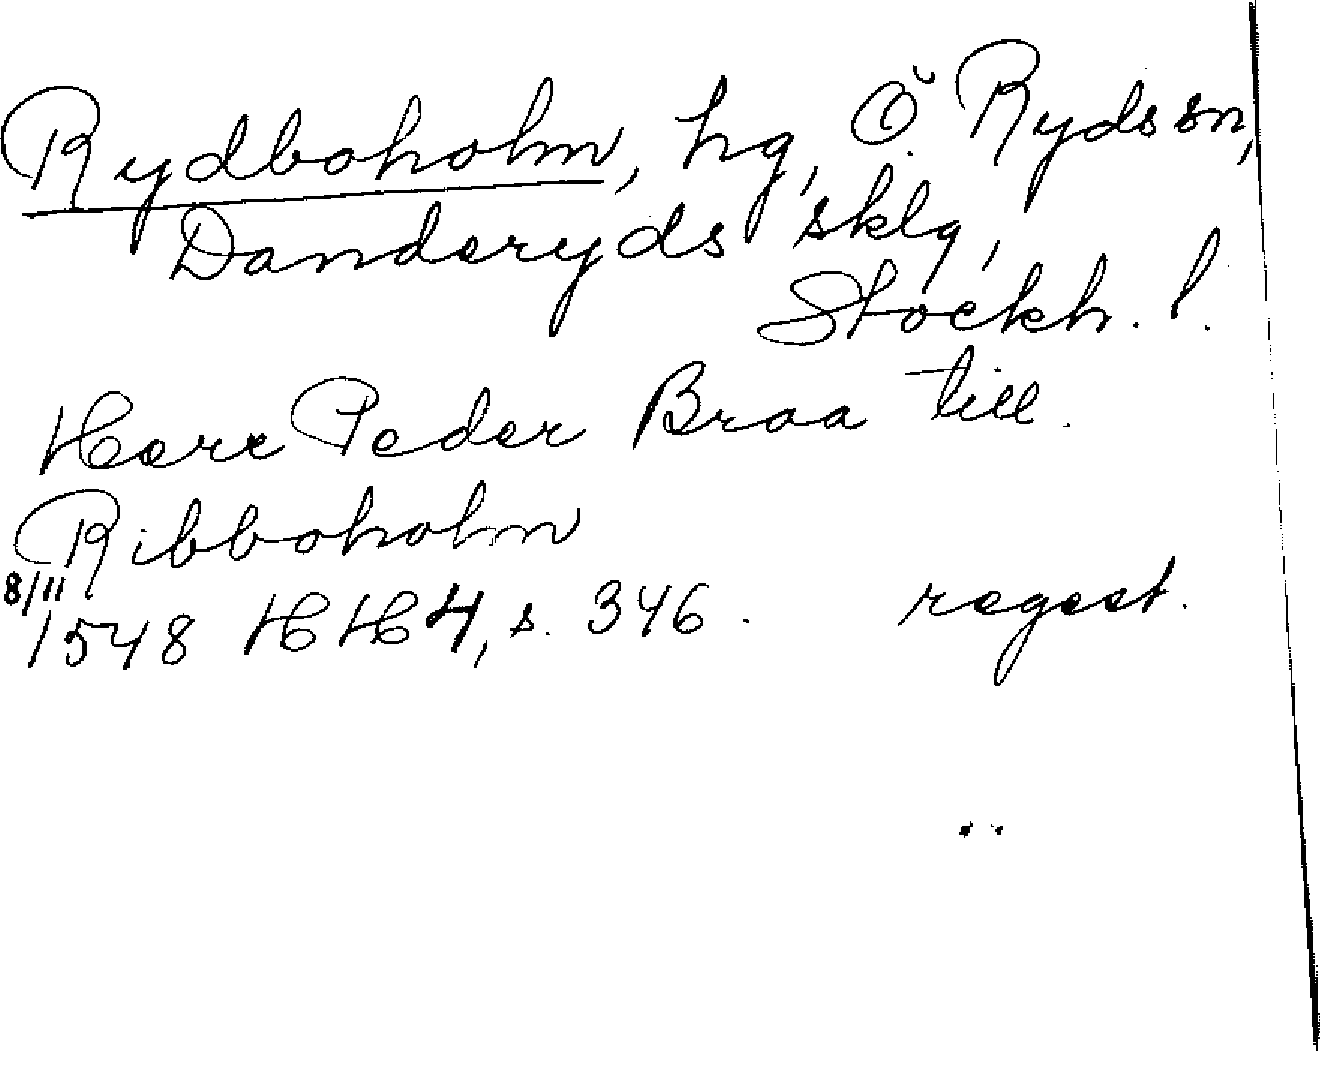 Rydboholm, hg, Ö. Ryds sn,
Danderyds sklg,
Stockh. l.
Herr Peder Braa till
Ribboholm
8/11
1548 HH4, s. 346. regest.